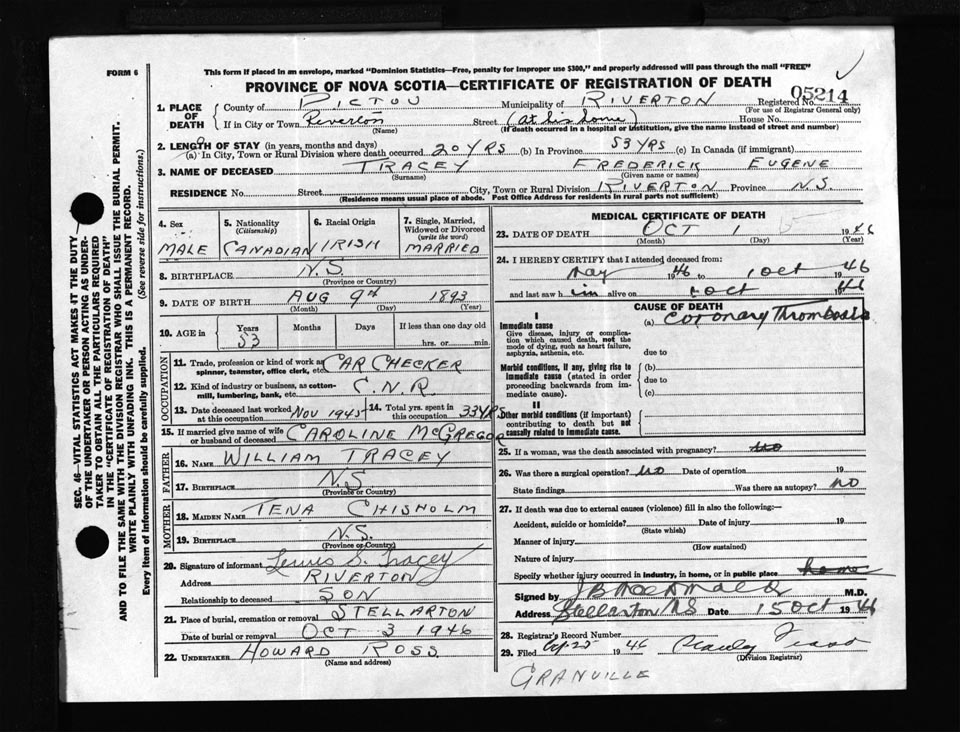 FORM 6
This form if placed in an envelope, marked "Dominion Statistics—Free, penalty for improper use $300," and properly addressed will pass through the mail "FREE"
PROVINCE OF NOVA SCOTIA—CERTIFICATE OF REGISTRATION OF DEATH
05214
1. PLACE OF DEATH { County of PICTOU Municipality of RIVERTON Registered No.
(For use of Registrar General only)
If in City or Town Riverton Street (at his home) House No.
(Name) (If death occurred in a hospital or institution, give the name instead of street and number)
2. LENGTH OF STAY (in years, months and days)
(a) In City, Town or Rural Division where death occurred 20 YRS (b) In Province 53 YRS (c) In Canada (if immigrant)
3. NAME OF DECEASED TRACEY FREDERICK EUGENE
(Surname) (Given name or names)
RESIDENCE No. Street City, Town or Rural Division RIVERTON Province N.S.
(Residence means usual place of abode. Post Office Address for residents in rural parts not sufficient)
4. Sex 5. Nationality (Citizenship) 6. Racial Origin 7. Single, Married, Widowed or Divorced (write the word)
MALE CANADIAN IRISH MARRIED
8. BIRTHPLACE N.S.
(Province or Country)
9. DATE OF BIRTH AUG 9th 1893
(Month) (Day) (Year)
10. AGE in Years Months Days If less than one day
53 hrs. or min.
OCCUPATION
11. Trade, profession or kind of work as spinner, teamster, office clerk, etc. CAR CHECKER
12. Kind of industry or business, as cotton-mill, lumbering, bank, etc. C.N.R
13. Date deceased last worked at this occupation Nov 1945 14. Total yrs. spent in this occupation 33 YRS
15. If married give name of wife or husband of deceased CAROLINE McGREGOR
FATHER
16. NAME WILLIAM TRACEY
17. BIRTHPLACE N.S.
(Province or Country)
MOTHER
18. MAIDEN NAME TENA CHISHOLM
19. BIRTHPLACE N.S.
(Province or Country)
20. Signature of informant Lewis S. Tracey
Address RIVERTON
Relationship to deceased SON
21. Place of burial, cremation or removal STELLARTON
Date of burial or removal OCT 3 1946
22. UNDERTAKER HOWARD ROSS
(Name and address)
MEDICAL CERTIFICATE OF DEATH
23. DATE OF DEATH OCT 1 1946
(Month) (Day) (Year)
24. I HEREBY CERTIFY that I attended deceased from:
May 1946 to 1 Oct 1946
and last saw him alive on 1 Oct 1946
CAUSE OF DEATH
I
Immediate cause (a) Coronary Thrombosis
Give disease, injury or complication which caused death, not the mode of dying, such as heart failure, asphyxia, asthenia, etc.
due to
Morbid conditions, if any, giving rise to immediate cause (stated in order proceeding backwards from immediate cause). (b)
due to
(c)
II
Other morbid conditions (if important) contributing to death but not causally related to immediate cause.
25. If a woman, was the death associated with pregnancy? no
26. Was there a surgical operation? no Date of operation 19
State findings Was there an autopsy? no
27. If death was due to external causes (violence) fill in also the following:—
Accident, suicide or homicide? Date of injury 19
(State which)
Manner of injury
(How sustained)
Nature of injury
Specify whether injury occurred in industry, in home, or in public place home
Signed by J B MacDonald M.D.
Address Stellarton N S Date 15 Oct 1946
28. Registrar's Record Number
29. Filed 25 1946
(Division Registrar)
GRANVILLE
SEC. 46—VITAL STATISTICS ACT MAKES IT THE DUTY
OF THE UNDERTAKER OR PERSON ACTING AS UNDER-
TAKER TO OBTAIN ALL THE PARTICULARS REQUIRED
IN THE "CERTIFICATE OF REGISTRATION OF DEATH"
AND TO FILE THE SAME WITH THE DIVISION REGISTRAR WHO SHALL ISSUE THE BURIAL PERMIT.
WRITE PLAINLY WITH UNFADING INK. THIS IS A PERMANENT RECORD.
Every item of information should be carefully supplied. (See reverse side for instructions.)